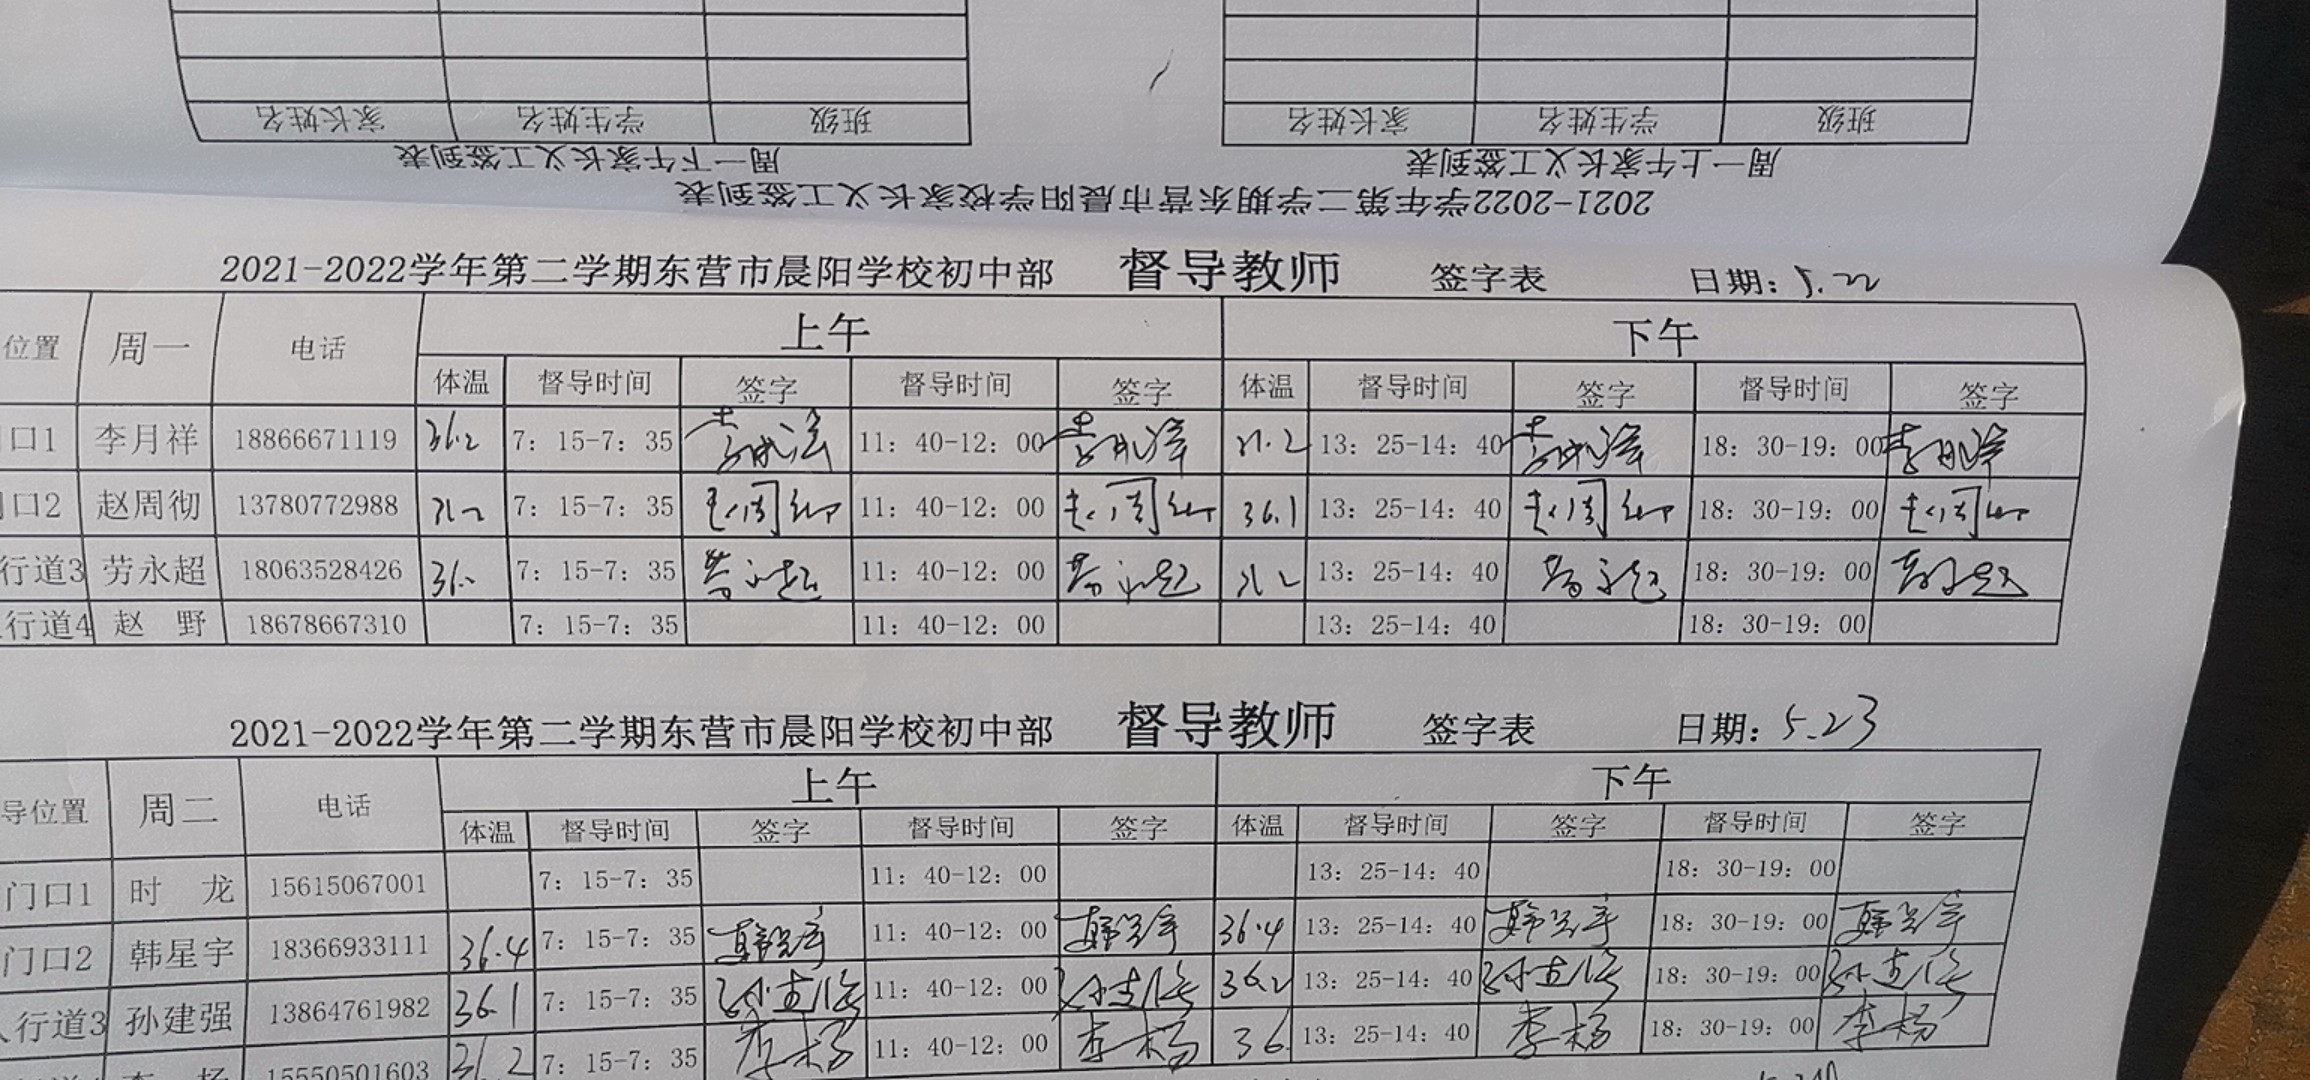 家长姓名 学生姓名 班级 家长姓名 学生姓名 班级
周一下午家长义工签到表 周一上午家长义工签到表
2021-2022学年第二学期东营市晨阳学校家长义工签到表
2021-2022学年第二学期东营市晨阳学校初中部 督导教师 签字表 日期: 5.22
位置 周一 电话 上午 下午
体温 督导时间 签字 督导时间 签字 体温 督导时间 签字 督导时间 签字
口1 李月祥 18866671119 36.2 7: 15-7: 35 11: 40-12: 00 13: 25-14: 40 18: 30-19: 00
口2 赵周彻 13780772988 7: 15-7: 35 11: 40-12: 00 36.1 13: 25-14: 40 18: 30-19: 00
行道3 劳永超 18063528426 7: 15-7: 35 劳永超 11: 40-12: 00 劳永超 13: 25-14: 40 劳永超 18: 30-19: 00 劳永超
行道4 赵 野 18678667310 7: 15-7: 35 11: 40-12: 00 13: 25-14: 40 18: 30-19: 00
2021-2022学年第二学期东营市晨阳学校初中部 督导教师 签字表 日期: 5.23
导位置 周二 电话 上午 下午
体温 督导时间 签字 督导时间 签字 体温 督导时间 签字 督导时间 签字
门口1 时 龙 15615067001 7: 15-7: 35 11: 40-12: 00 13: 25-14: 40 18: 30-19: 00
门口2 韩星宇 18366933111 36.4 7: 15-7: 35 韩星宇 11: 40-12: 00 韩星宇 36.4 13: 25-14: 40 韩星宇 18: 30-19: 00 韩星宇
人行道3 孙建强 13864761982 36.1 7: 15-7: 35 孙建强 11: 40-12: 00 孙建强 36.2 13: 25-14: 40 孙建强 18: 30-19: 00 孙建强
李 杨 15550501603 36.2 7: 15-7: 35 李杨 11: 40-12: 00 李杨 36 13: 25-14: 40 李杨 18: 30-19: 00 李杨